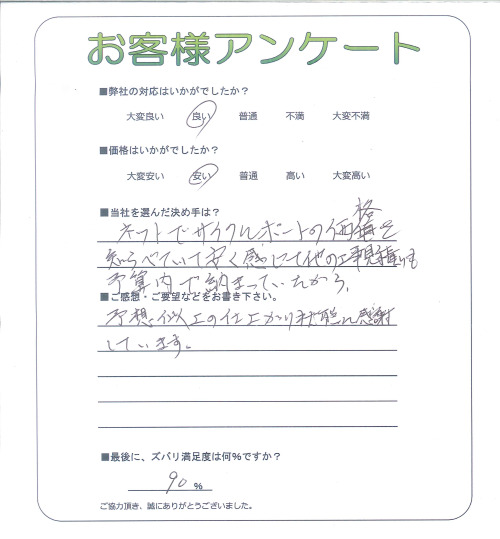 お客様アンケート
■弊社の対応はいかがでしたか？
大変良い 良い 普通 不満 大変不満
■価格はいかがでしたか？
大変安い 安い 普通 高い 大変高い
■当社を選んだ決め手は？
ネットでサイクルポートの価格を
知らべていて安く感じて他の工事見積りも
予算内で納まっていたから、
■ご感想・ご要望などをお書き下さい。
予想以上の仕上がり状態に感謝
しています。
■最後に、ズバリ満足度は何%ですか？
90 %
ご協力頂き、誠にありがとうございました。